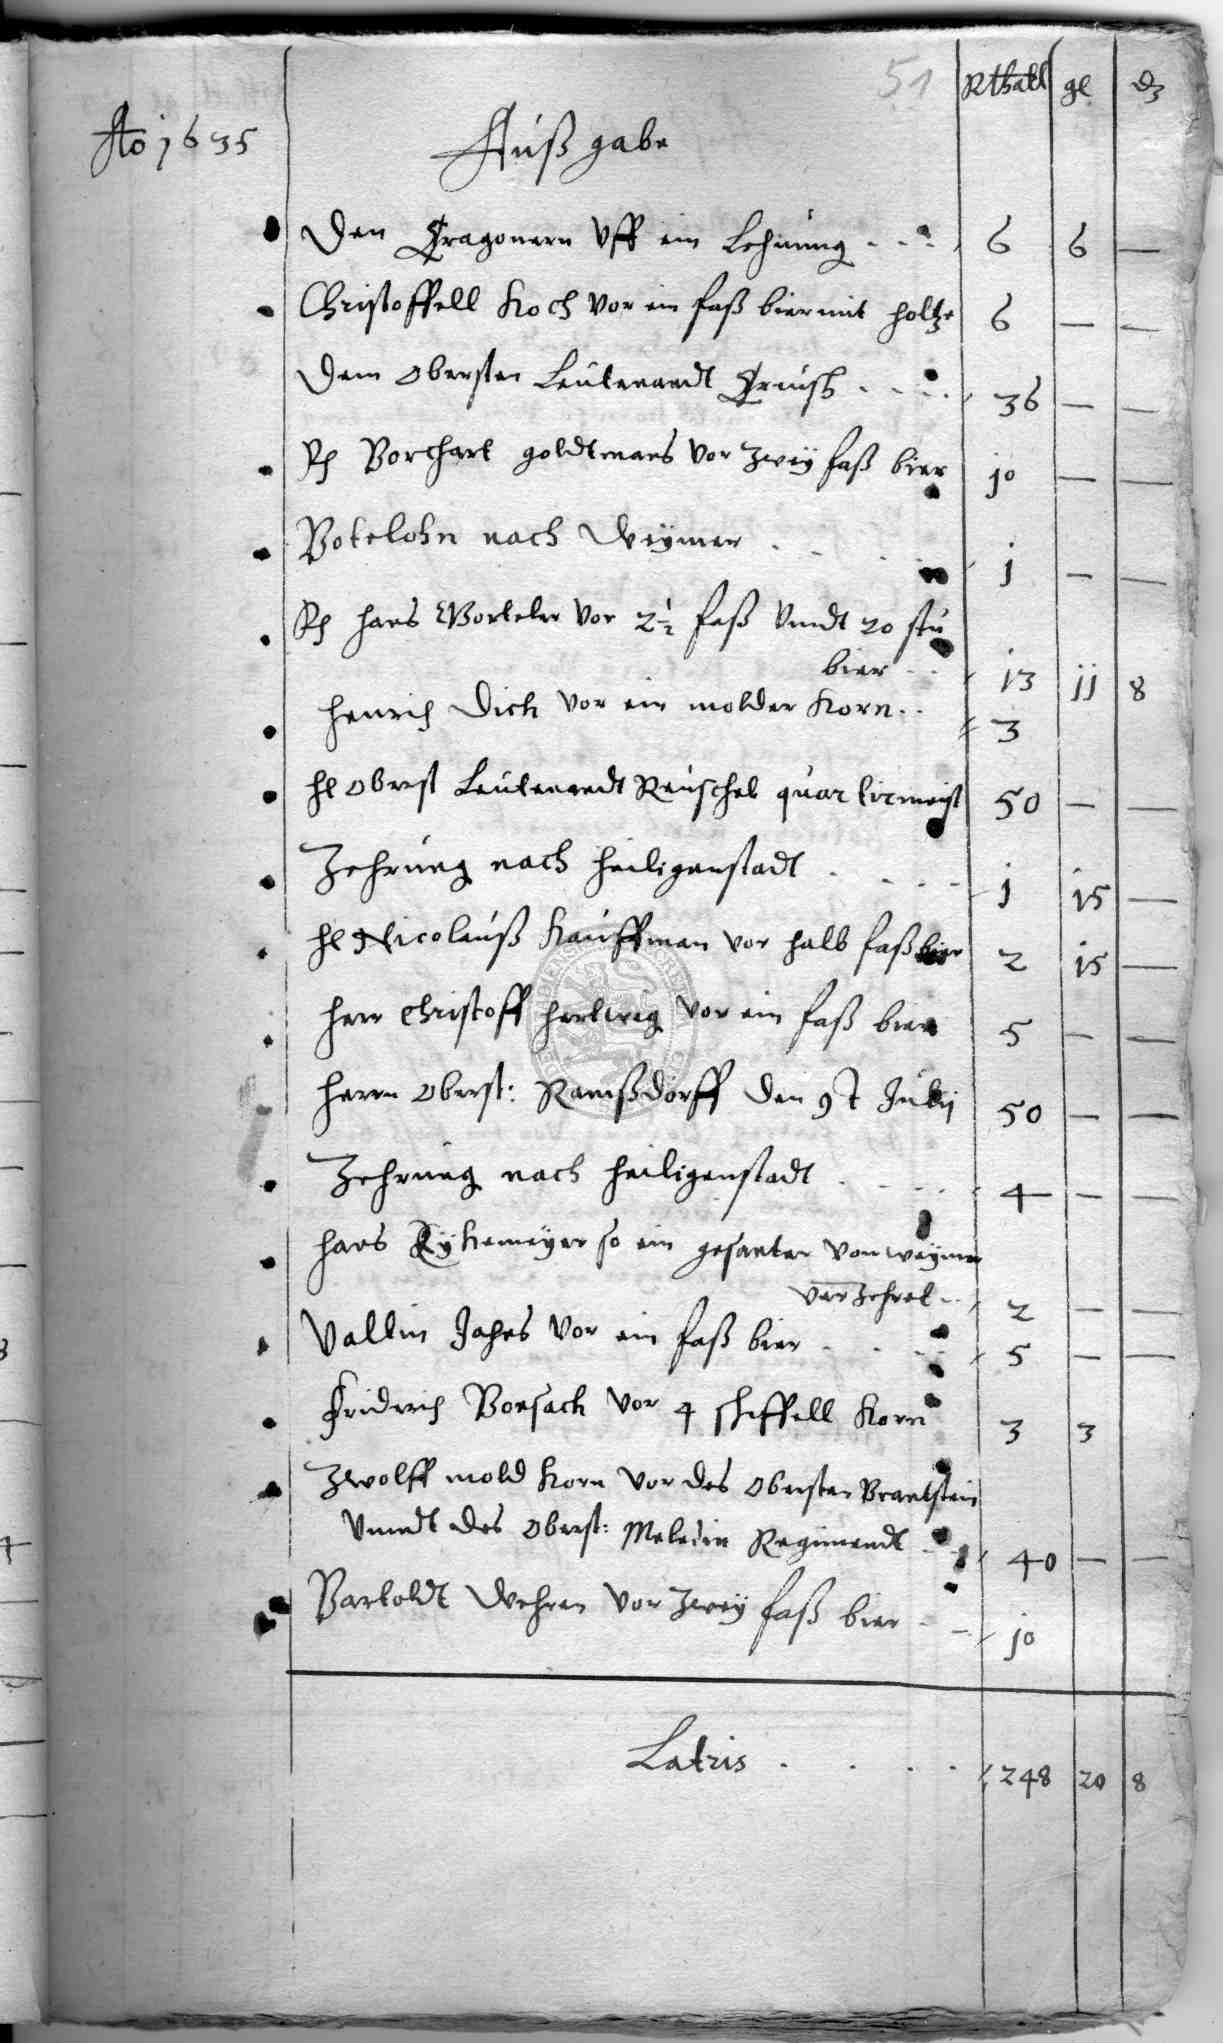 51
Rthall gl ₰
Ao 1635
Außgabe
Den Dragonern Uff ein Lehnung 6 6 —
Christoffell Koch vor ein faß bier mit holtze 6 — —
Dem Obersten Leutenandt 36 — —
Borchart goldtmans vor zweÿ faß bier 10 — —
Botelohn nach Weÿmer 1 — —
hansWorteler vor 2½ faß Undt 20 stu
bier 13 11 8
Henrich Dick vor ein molder Korn 3
hl Obrist Leutenandt Reuschel quartirmeist 50 — —
Zehrung nach Heiligenstadt 1 15 —
hl Nicolauß Kauffman vor halb faß bier 2 15 —
Herr Christoff Hartwig vor ein faß bier 5 — —
Herrn Oberst: Ramßdorff den 9t Julij 50 — —
Zehrung nach Heiligenstadt 4 — —
hans Rÿkemeÿer so ein gesanter von weÿmer
verzehret 2 — —
Valtin Jahns vor ein faß bier 5 — —
Fridrich Bonsack vor 4 scheffell Korn 3 3
Zwolff mold Korn vor des Obristen Brantstein
Unndt des Oberst: Regimendt 40 — —
Bartoldt Wehren vor zweÿ faß bier 10
Latris 248 20 8